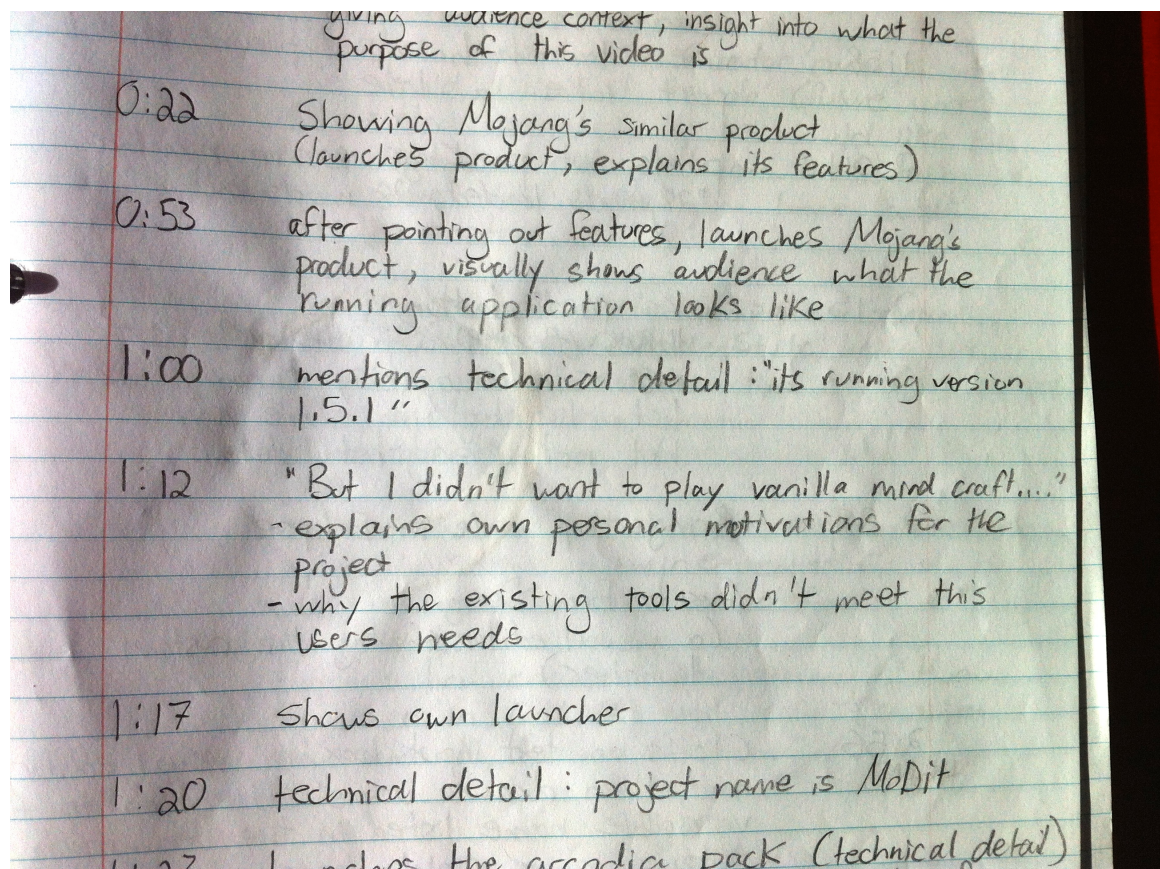 giving audience context, insight into what the
purpose of this video is
0:22 Showing Mojang's similar product
(launches product, explains its features)
0:53 after pointing out features, launches Mojang's
product, visually shows audience what the
running application looks like
1:00 mentions technical detail : "its running version
1.5.1"
1:12 "But I didn't want to play vanilla mind craft...."
- explains own personal motivations for the
project
- why the existing tools didn't meet this
users needs
1:17 shows own launcher
1:20 technical detail : project name is MoDit
the arcadia pack (technical detail)